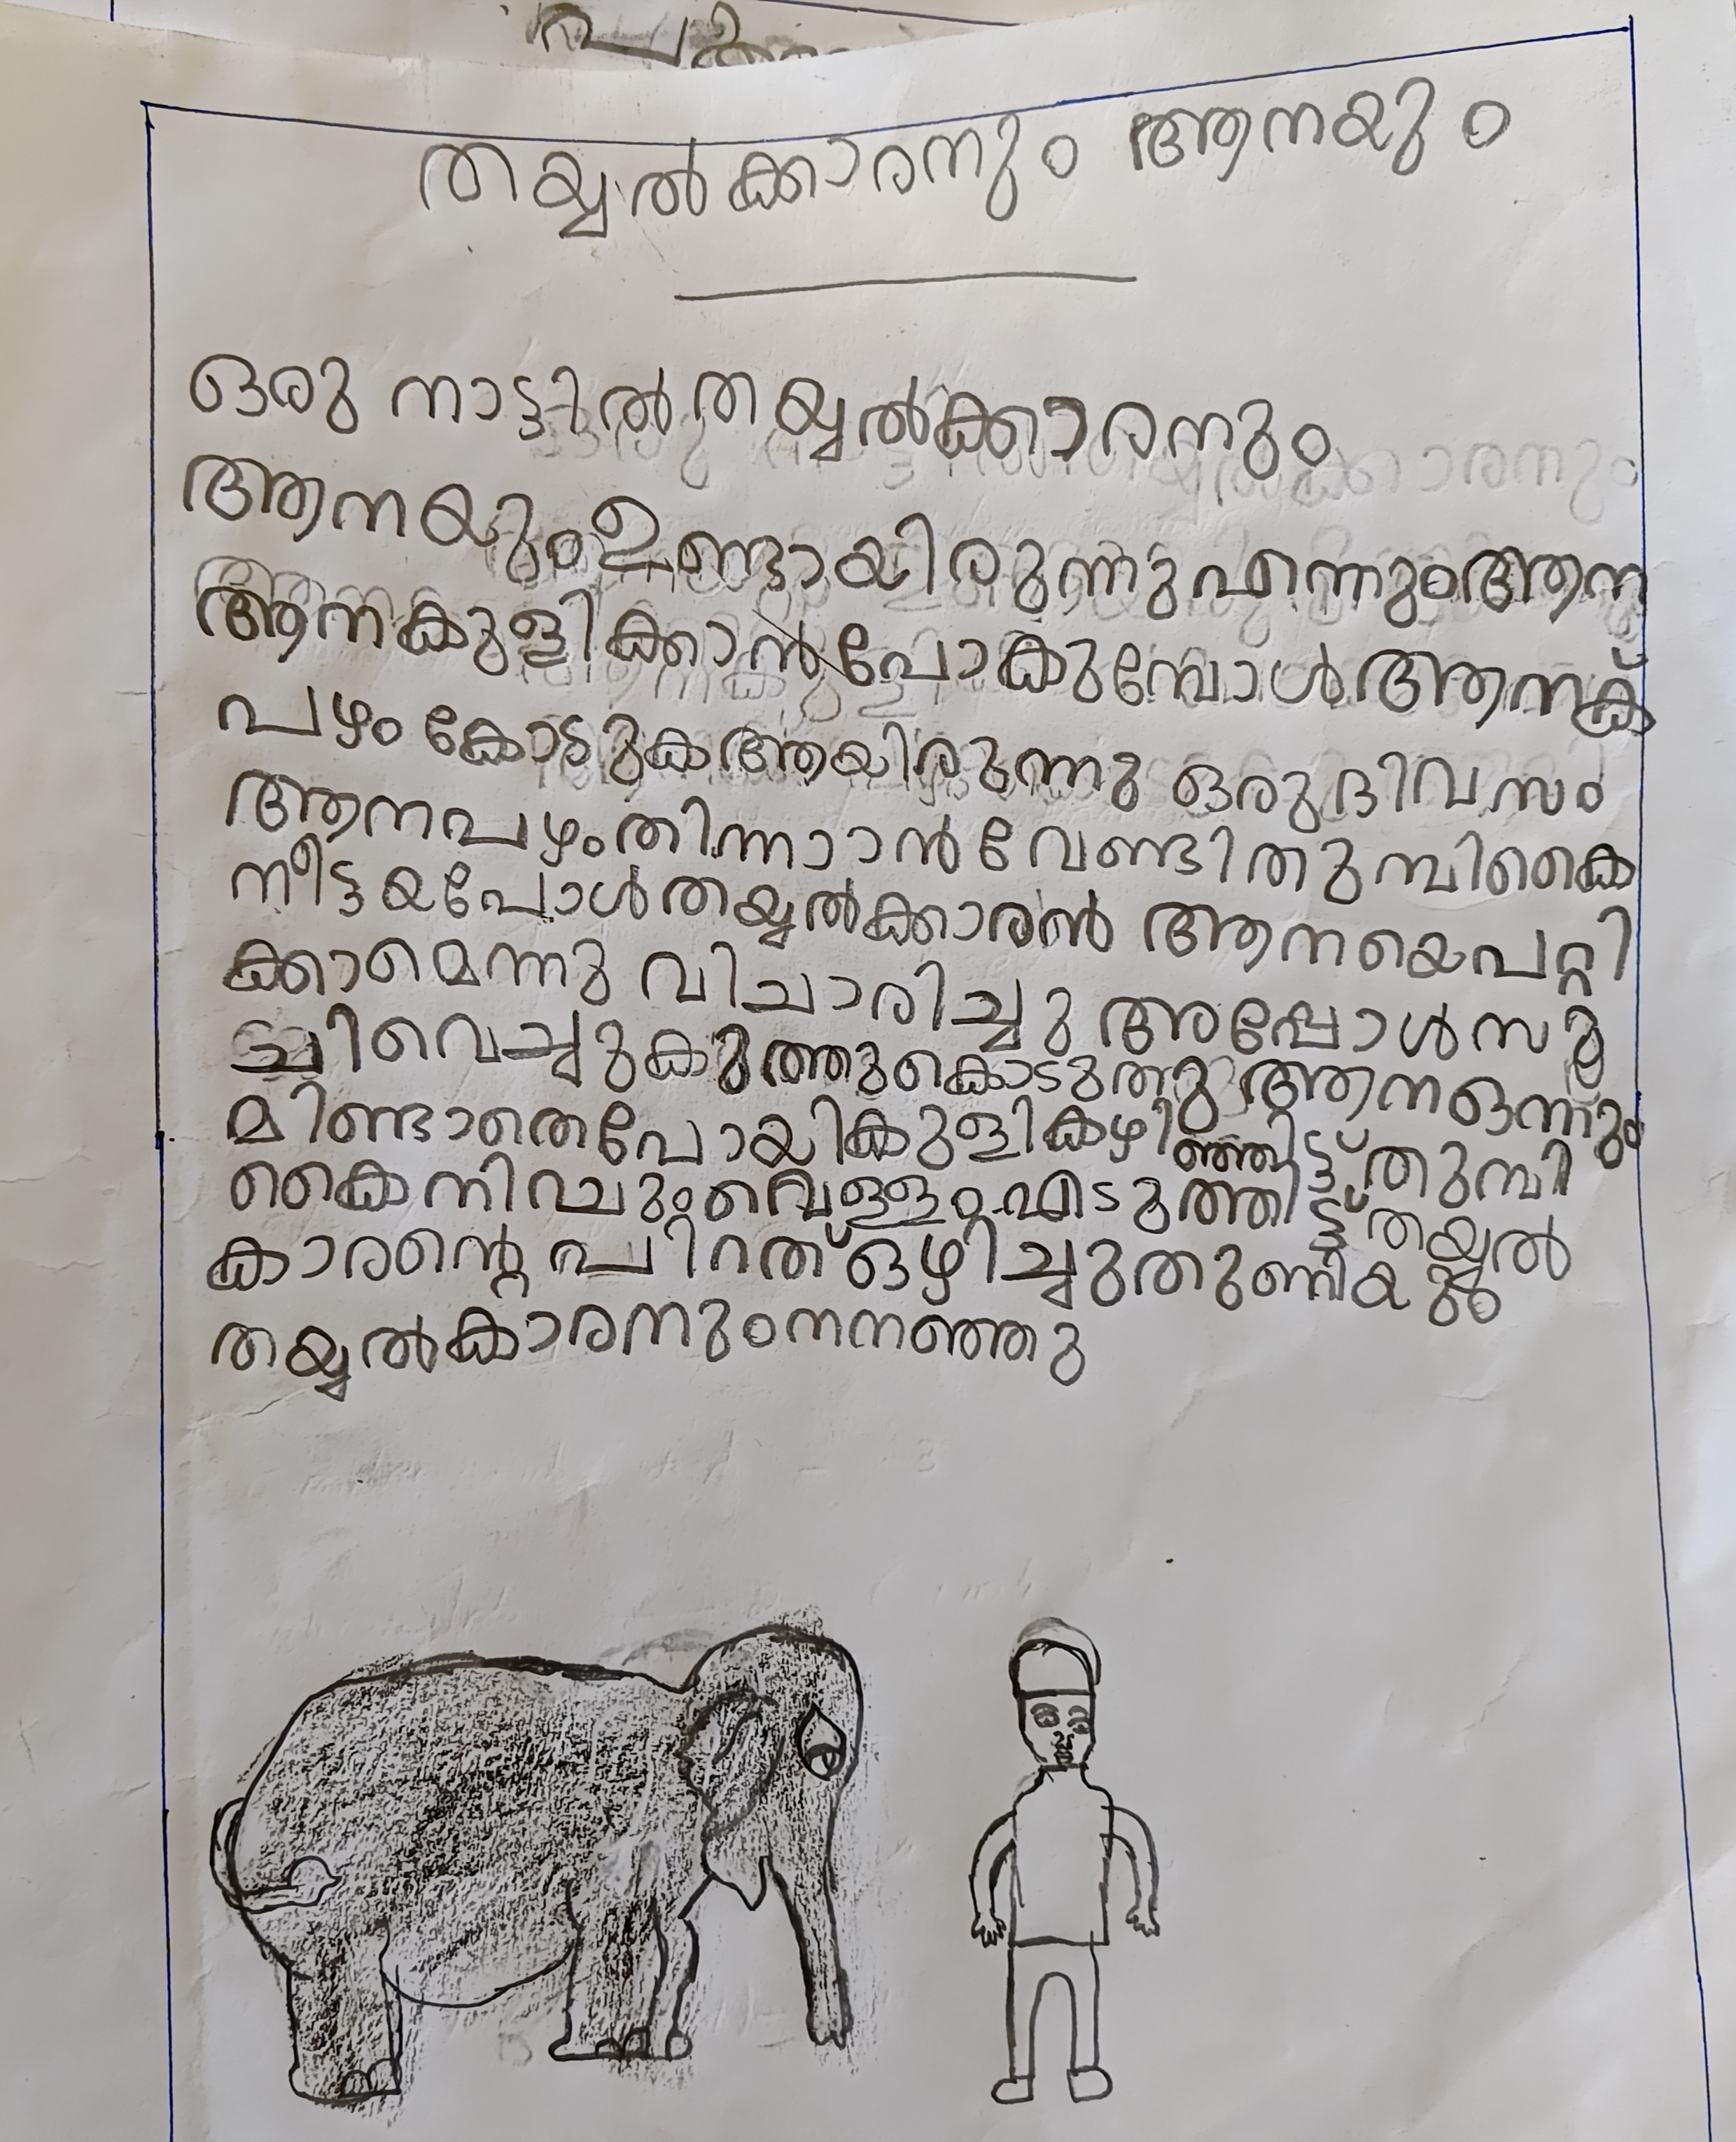 തയ്യൽക്കാരനും ആനയും
ഒരു നാട്ടിൽ തയ്യൽക്കാരനും
ആനയും ഉണ്ടായിരുന്നു എന്നും ആന
ആന കുളിക്കാൻ പോകുമ്പോൾ ആനക്
പഴം കോടുക ആയിരുന്നു ഒരു ദിവസം
ആന പഴം തിന്നാാൻ വേണ്ടി തുമ്പികൈ
നീട്ടയപോൾ തയ്യൽക്കാരൻ ആനയെ പറ്റി
ക്കാമെന്നു വിചാരിച്ചു അപ്പോൾ സൂ
ച്ചി വെച്ചു കുത്തു കൊടുതു ആന ഒന്നും
മിണ്ടാതെ പോയി കുളി കഴിഞ്ഞിട്ട് തുമ്പി
കൈ നിച്ചും വെള്ളം എടുത്തിട്ട് തയ്യൽ
കാരന്റെ പിറത് ഒഴിച്ചു തുണിയും
തയ്യൽകാരനും നനഞ്ഞു